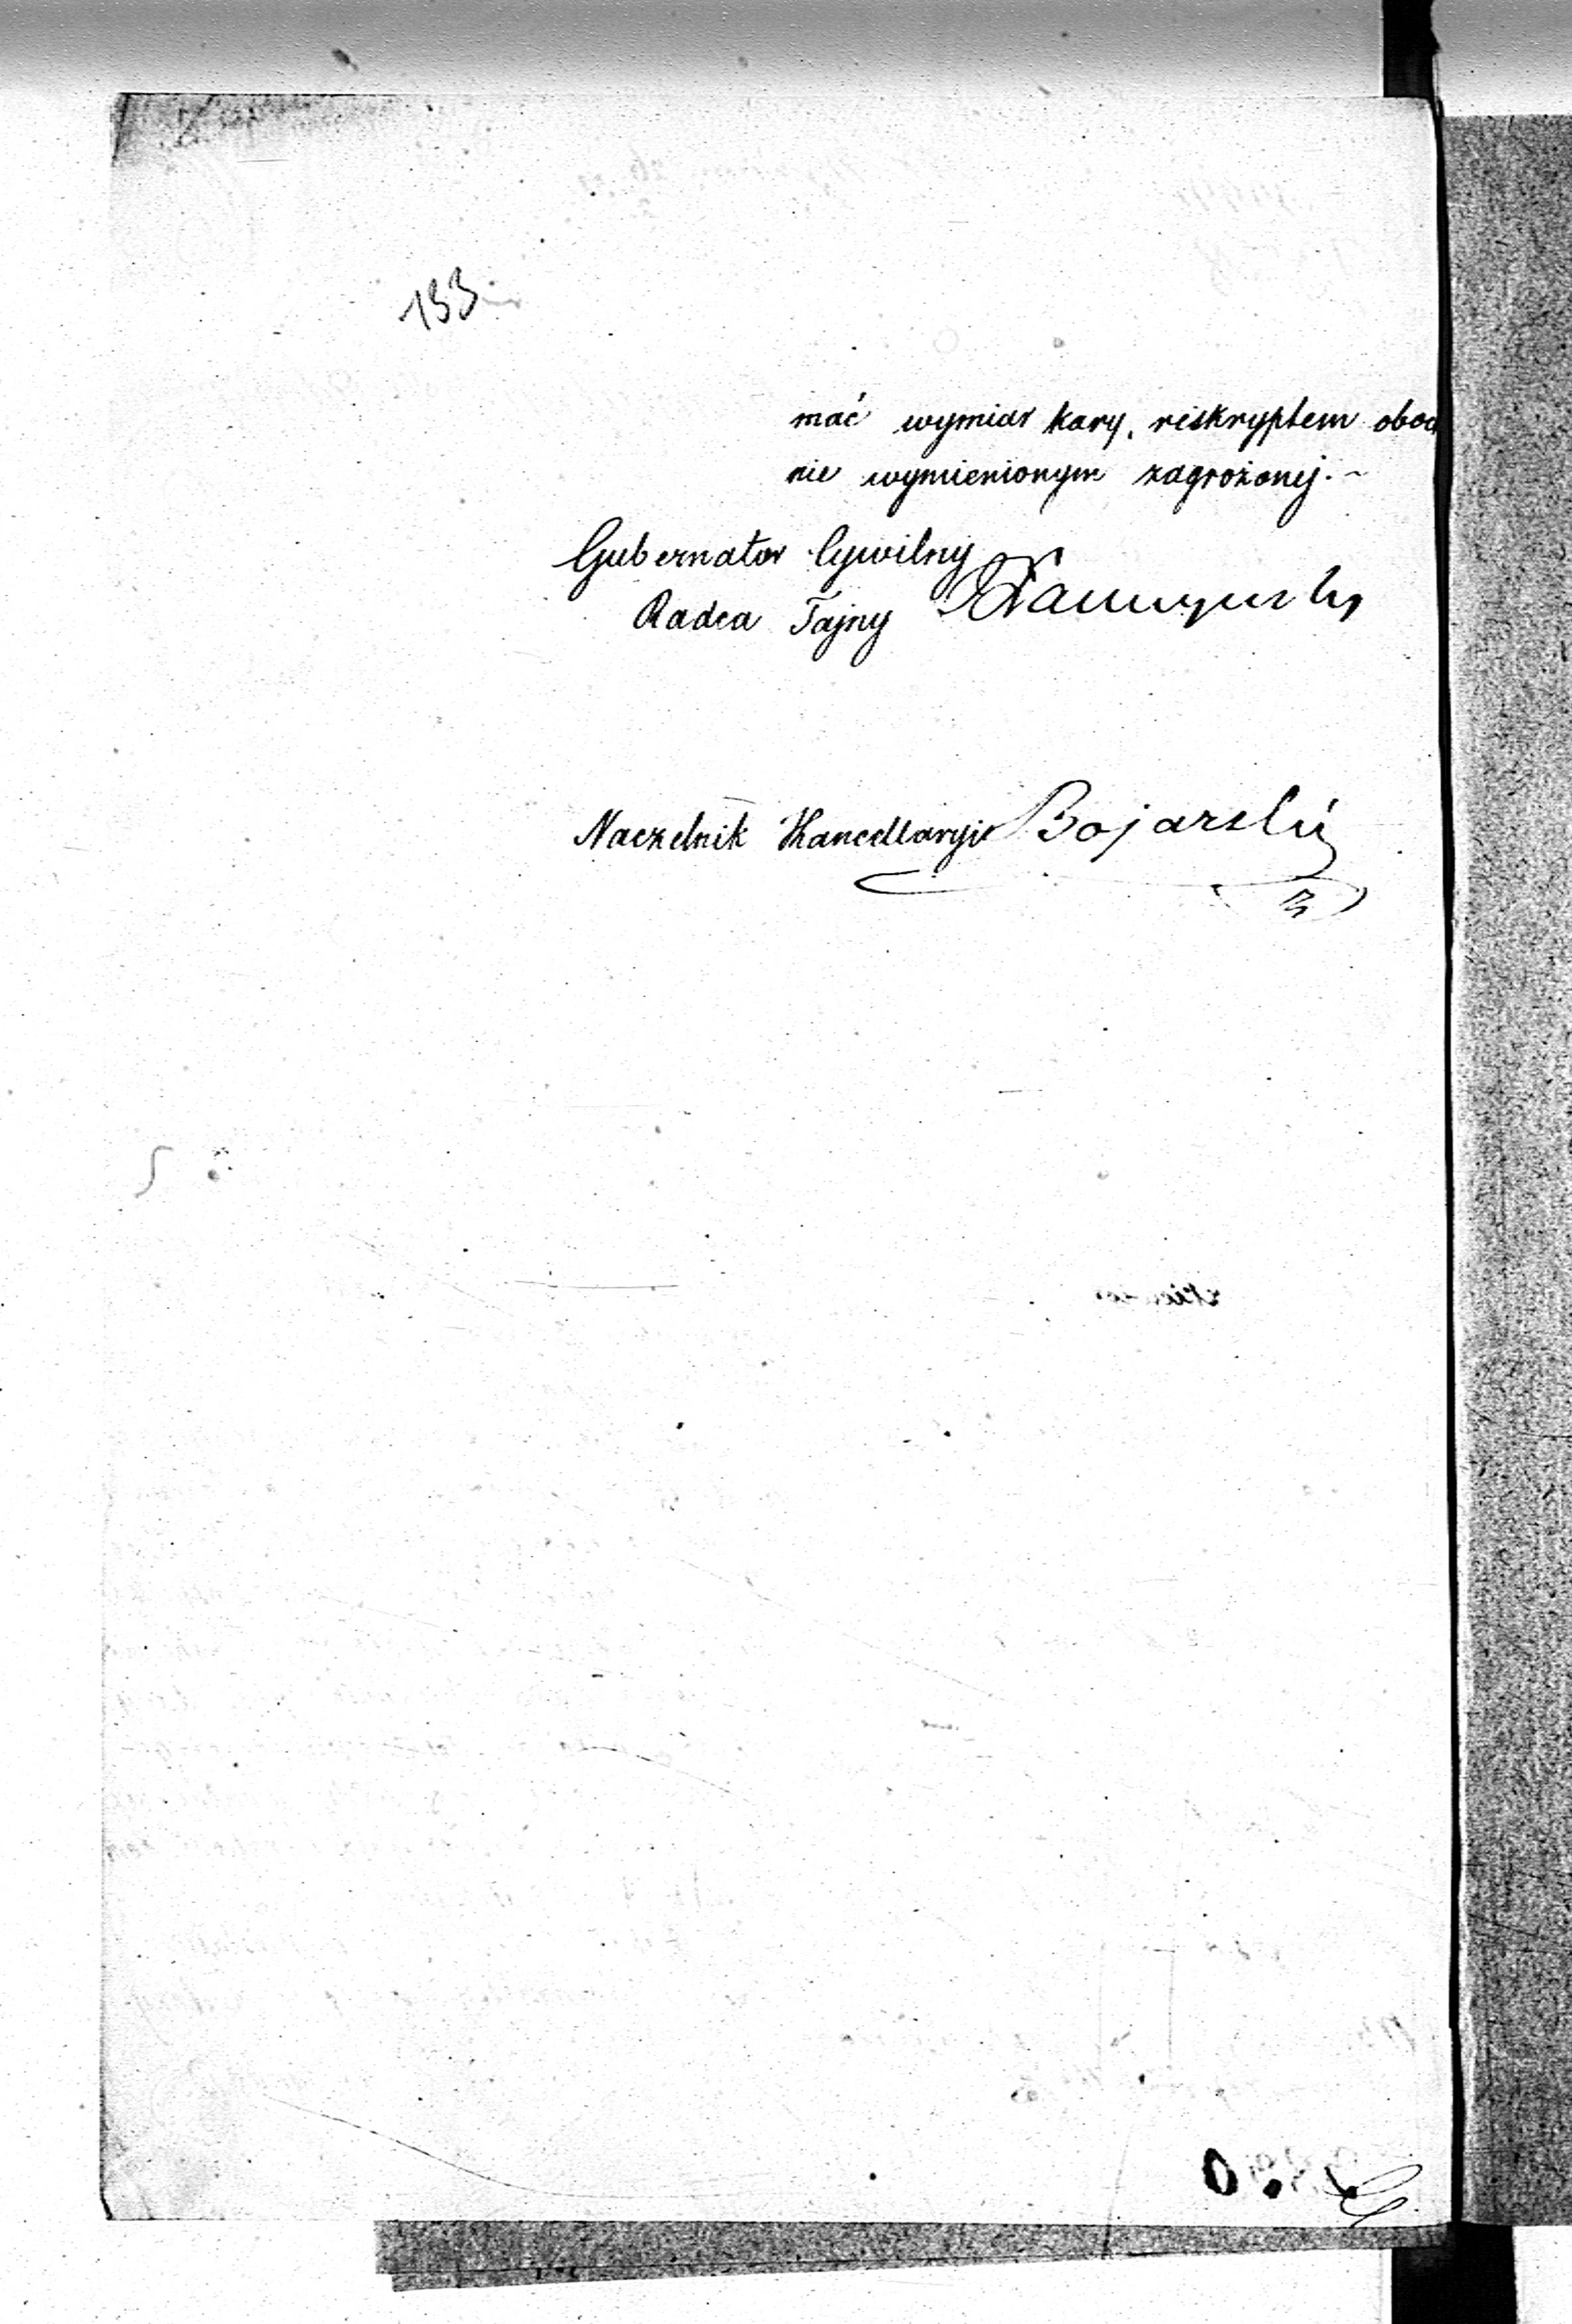 133
mać wymiar kary, reskryptem oboc
nie wymienionym zagrożonej. ~
Gubernator Cywilny
Radca Tajny
Naczelnik Kancellaryi Bojarski